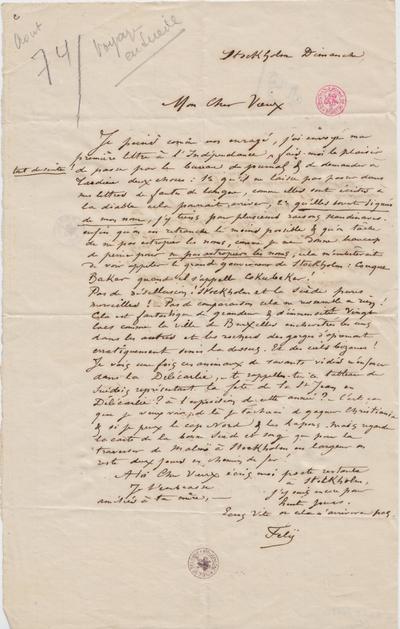 Aout
74
Voyage en Suède
Stockholm Dimanche
Mon Cher Vieux
Je peins comme un enragé, j'ai envoyé ma
première lettre à l'Indépendance, fais-moi le plaisir
tout de suite de passer par le bureau du journal & de demander à
Tardieu deux choses: 1º qu'il ne laisse pas passer dans
mes lettres de faute de langue, comme elles sont écrites à
la diable cela pourrait arriver, 2º qu'elles soient signées
de mon nom, j'y tiens pour plusieurs raisons
enfin qu'on en retranche le moins possible & qu'on tache
de ne pas estropier les noms, comme je me donne beaucoup
de peine pour ne pas estropier les noms, cela m'embêterait
de voir appeler le grand gouverneur de Stockholm:
Baker quand il s'appelle
Pas de désillusion! Stockholm et la Suède
merveilles! Pas de comparaison cela ne ressemble à rien!
Cela est fantastique de grandeur & d'immensité Vingt
lacs comme la ville de Bruxelles enchevêtrés les uns
dans les autres et les rochers des gorges
cratiquement sur le dessus. Et des ciels bizarres!
Je vous un fois ces animaux de savants vidés m'enfonce
dans la Dalécarlie, te rappelles-tu ce tableau de
Suédois représentant la fête de la St Jean en
Dalécarlie? à l'exposition de cette année? C'est ça
que je veux voir, de là je tacherai de gagner Christiania
& si je peux le cap Nord & les Lapons, mais regarde
la carte de la bonne Suède et songe que pour la
traverser de Malmö à Stockholm, en largeur on
reste deux jours en chemin de fer!
A toi Cher Vieux écris moi poste restante
à Stockholm,
Je t'embrasse
j'y suis encore pour
huit jours.
amitiés à ta mère,
Ecris vite ou cela n'arrivera pas.
Fély